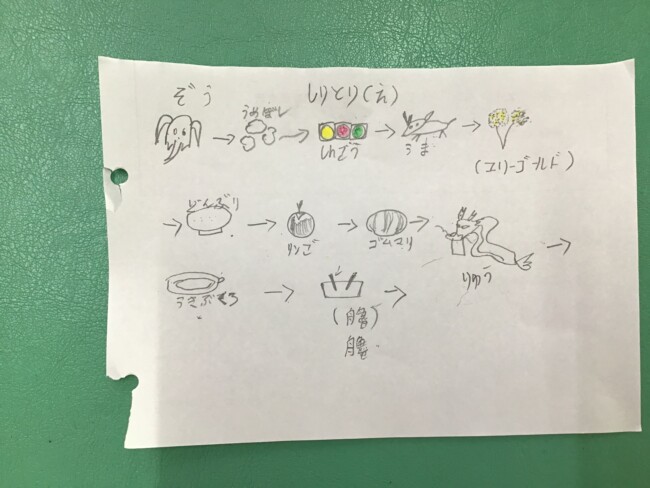 ぞう しりとり(え)
うめぼし
しんごう うま (マリーゴールド)
どんぶり りんご ゴムマリ りゅう
うきぶくろ
(艪)
艪